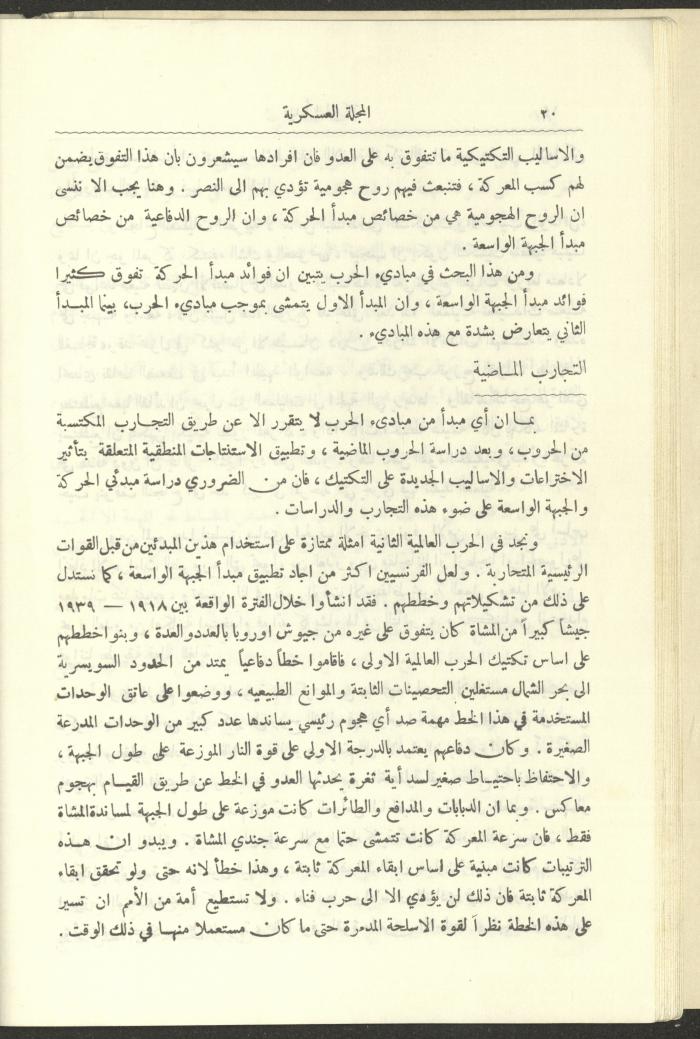 ٢٠ المجلة العسكرية
والاساليب التكتيكية ما تتفوق به على العدو فان افرادها سيشعرون بان هذا التفوق يضمن
لهم كسب المعركة ، فتنبعث فيهم روح هجومية تؤدي بهم الى النصر . وهنا يجب الا ننسى
ان الروح الهجومية هي من خصائص مبدأ الحركة ، وان الروح الدفاعية من خصائص
مبدأ الجبهة الواسعة .
ومن هذا البحث في مباديء الحرب يتبين ان فوائد مبدأ الحركة تفوق كثيرا
فوائد مبدأ الجبهة الواسعة ، وان المبدأ الاول يتمشى بموجب مباديء الحرب، بينما المبدأ
الثاني يتعارض بشدة مع هذه المباديء .
التجارب الماضية
بما ان أي مبدأ من مباديء الحرب لا يتقرر الا عن طريق التجارب المكتسبة
من الحروب ، وبعد دراسة الحروب الماضية ، وتطبيق الاستنتاجات المنطقية المتعلقة بتأثير
الاختراعات والاساليب الجديدة على التكتيك ، فان من الضروري دراسة مبدئي الحركة
والجبهة الواسعة على ضوء هذه التجارب والدراسات .
ونجد في الحرب العالمية الثانية امثلة ممتازة على استخدام هذين المبدئين من قبل القوات
الرئيسية المتحاربة . ولعل الفرنسيين اكثر من اجاد تطبيق مبدأ الجبهة الواسعة ، كما نستدل
على ذلك من تشكيلاتهم وخططهم . فقد انشأوا خلال الفترة الواقعة بين ١٩١٨ — ١٩٣٩
جيشاً كبيراً من المشاة كان يتفوق على غيره من جيوش اوروبا بالعدد والعدة ، وبنوا خططهم
على اساس تكتيك الحرب العالمية الاولى ، فاقاموا خطاً دفاعياً يمتد من الحدود السويسرية
الى بحر الشمال مستغلين التحصينات الثابتة والموانع الطبيعيه ، ووضعوا على عاتق الوحدات
المستخدمة في هذا الخط مهمة صد أي هجوم رئيسي يساندها عدد كبير من الوحدات المدرعة
الصغيرة . وكان دفاعهم يعتمد بالدرجة الاولى على قوة النار الموزعة على طول الجبهة ،
والاحتفاظ باحتياط صغير لسد أية ثغرة يحدثها العدو في الخط عن طريق القيام بهجوم
معاكس . وبما ان الدبابات والمدافع والطائرات كانت موزعة على طول الجبهة لمساندة المشاة
فقط ، فان سرعة المعركة كانت تتمشى حتما مع سرعة جندي المشاة . ويبدو ان هذه
الترتيبات كانت مبنية على اساس ابقاء المعركة ثابتة ، وهذا خطأ لانه حتى ولو تحقق ابقاء
المعركة ثابتة فان ذلك لن يؤدي الا الى حرب فناء . ولا تستطيع أمة من الأمم ان تسير
على هذه الخطة نظراً لقوة الاسلحة المدمرة حتى ما كان مستعملا منها في ذلك الوقت .